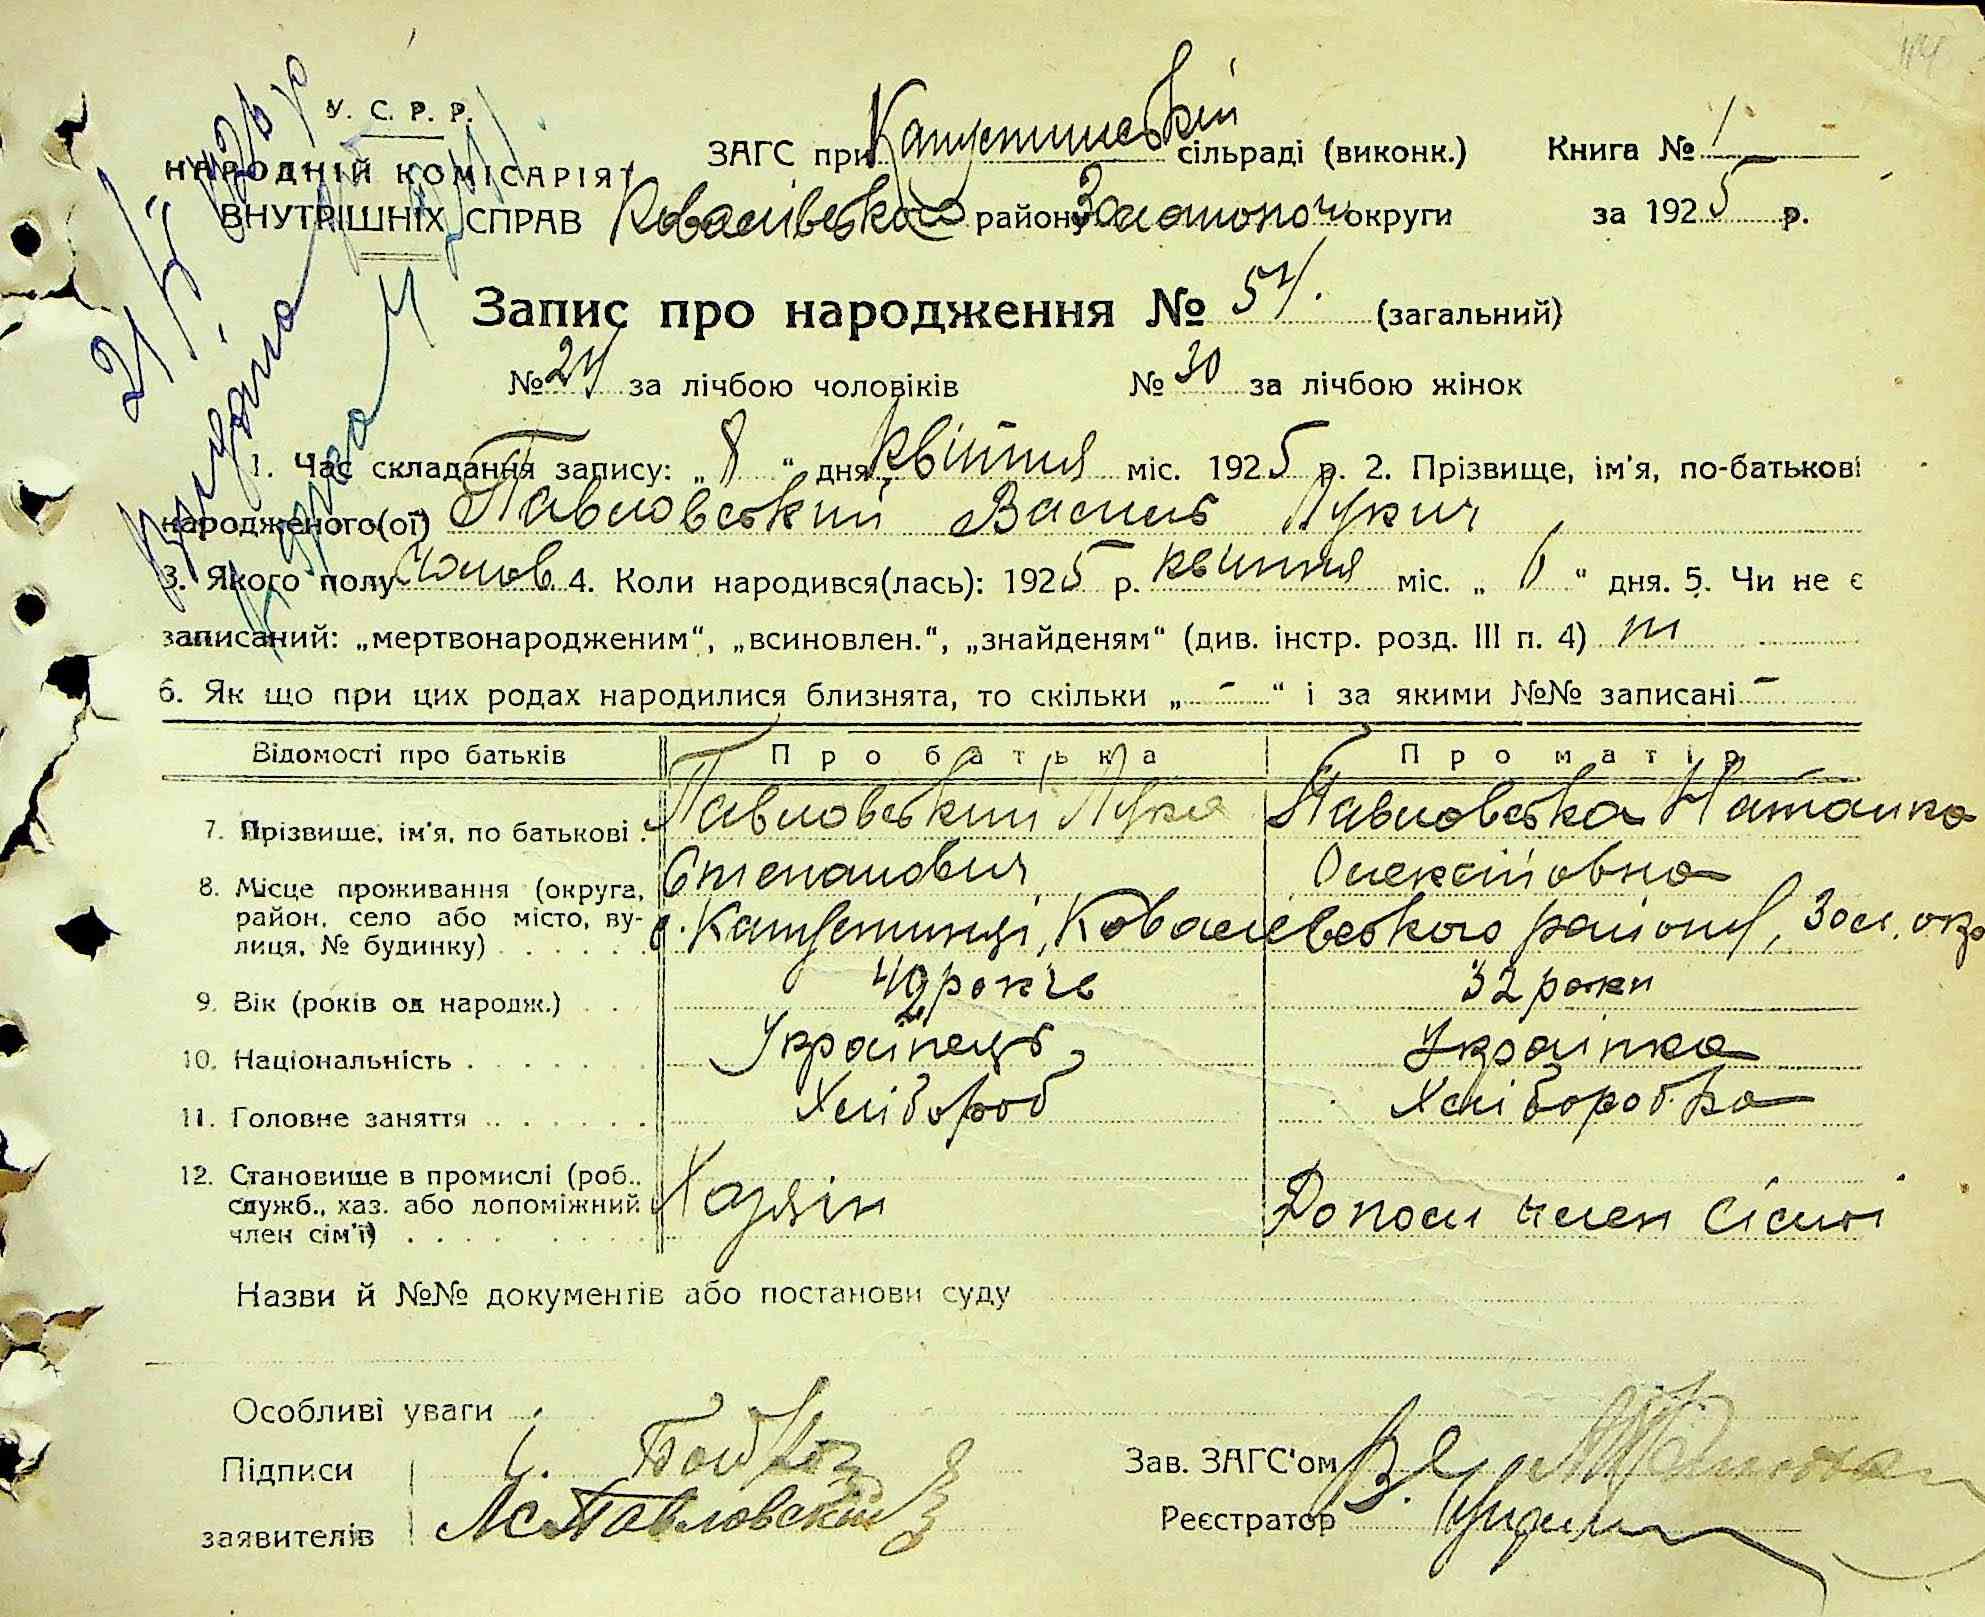 У. С. Р. Р.
НАРОДНІЙ КОМІСАРІЯТ
ВНУТРІШНІХ СПРАВ
ЗАГС при Капустинській сільраді (виконк.)
Ковалівського району Золотоноч округи
Книга № 1
за 1925 р.
Запис про народження № 54. (загальний)
№ 24 за лічбою чоловіків № 30 за лічбою жінок
1. Час складання запису: „8“ дня квітня міс. 1925 р. 2. Прізвище, ім'я, по-батькові
народженого(ої) Павловський Василь Лукич
3. Якого полу чолов. 4. Коли народився(лась): 1925 р. квітня міс. „6“ дня. 5. Чи не є
записаний: „мертвонародженим“, „всиновлен.“, „знайденям“ (див. інстр. розд. III п. 4)
6. Як що при цих родах народилися близнята, то скільки „-“ і за якими №№ записані -
Відомості про батьків Про батька Про матір
7. Прізвище, ім'я, по батькові . Павловський Лука Павловська Наталка
Степанович Олексійовна
8. Місце проживання (округа, район, село або місто, вулиця, № будинку) . . . . . с. Капустинці, Ковалівського району, Зол. окр
9. Вік (років од народж.) . . 49 років 32 роки
10. Національність . . . . . . Українець Українка
11. Головне заняття . . . . . . Хлібороб Хлібороб.ка
12. Становище в промислі (роб., служб., хаз. або допоміжний член сім'ї) . . . . Хазяїн Допом член сім'ї
Назви й №№ документів або постанови суду
Особливі уваги
Підписи
заявителів Павловский
Зав. ЗАГС'ом
Реєстратор